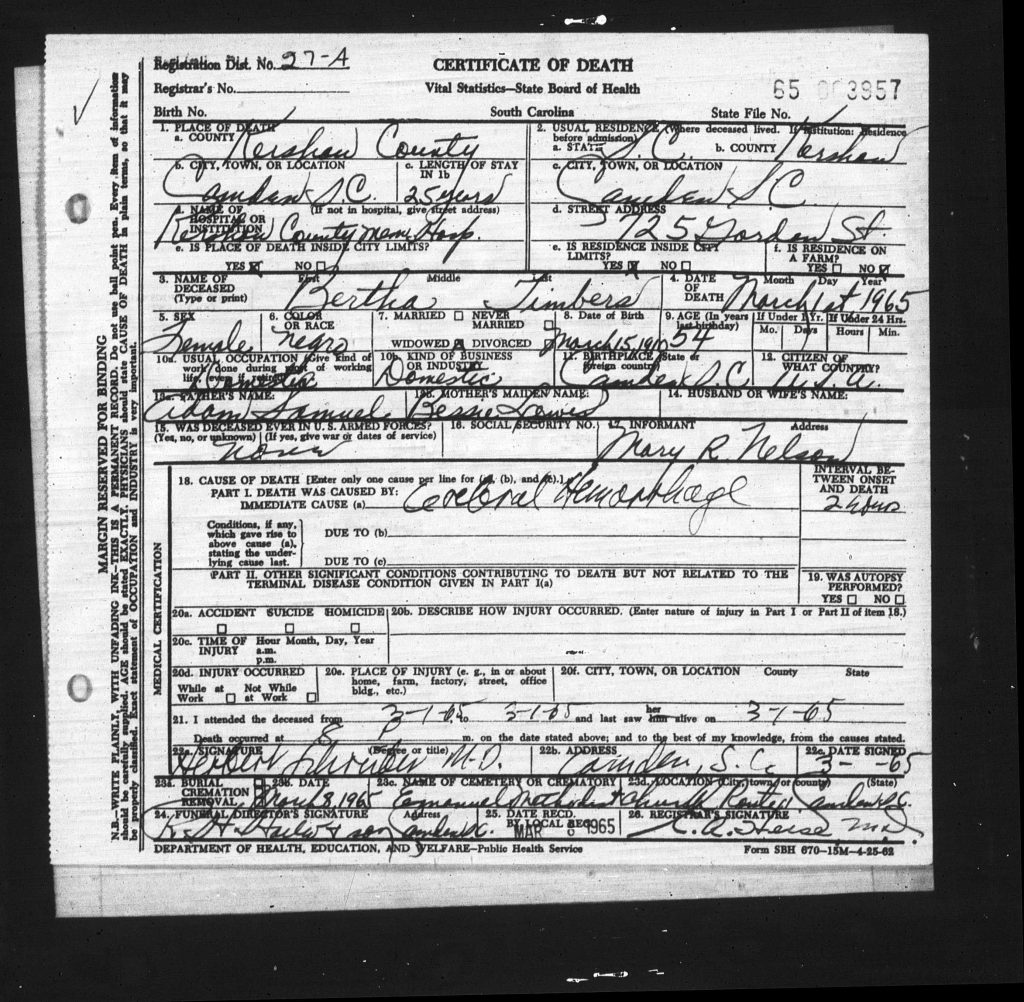 Registration Dist. No. 27-A
CERTIFICATE OF DEATH
Registrar's No.
Vital Statistics—State Board of Health
65 003957
Birth No.
South Carolina
State File No.
1. PLACE OF DEATH
a. COUNTY Kershaw County
2. USUAL RESIDENCE (Where deceased lived. If institution: Residence before admission)
a. STATE S.C.
b. COUNTY Kershaw
b. CITY, TOWN, OR LOCATION
Camden S.C.
c. LENGTH OF STAY IN 1b
25 years
c. CITY, TOWN, OR LOCATION
Camden S.C
d. NAME OF HOSPITAL OR INSTITUTION (If not in hospital, give street address)
Kershaw County Mem. Hosp.
d. STREET ADDRESS
725 Gordon St.
e. IS PLACE OF DEATH INSIDE CITY LIMITS?
YES X NO
e. IS RESIDENCE INSIDE CITY LIMITS?
YES X NO
f. IS RESIDENCE ON A FARM?
YES NO X
3. NAME OF DECEASED (Type or print)
First Middle Last
Bertha Timbers
4. DATE OF DEATH
Month Day Year
March 1st 1965
5. SEX
Female
6. COLOR OR RACE
negro
7. MARRIED NEVER MARRIED
WIDOWED X DIVORCED
8. Date of Birth
March 15, 1910
9. AGE (In years last birthday)
54
If Under 1 Yr. If Under 24 Hrs.
Mo. Days Hours Min.
10a. USUAL OCCUPATION (Give kind of work done during most of working life, even if retired)
Domestic
10b. KIND OF BUSINESS OR INDUSTRY
Domestic
11. BIRTHPLACE (State or foreign country)
Camden S.C
12. CITIZEN OF WHAT COUNTRY?
U.S.A.
13a. FATHER'S NAME:
Adam Samuel
13b. MOTHER'S MAIDEN NAME:
Bessie Lewis
14. HUSBAND OR WIFE'S NAME:
15. WAS DECEASED EVER IN U. S. ARMED FORCES?
(Yes, no, or unknown) (If yes, give war or dates of service)
16. SOCIAL SECURITY NO.
17. INFORMANT Address
Mary R. Nelson
18. CAUSE OF DEATH [Enter only one cause per line for (a), (b), and (c).]
PART I. DEATH WAS CAUSED BY:
IMMEDIATE CAUSE (a) Cerebral Hemorrhage
INTERVAL BETWEEN ONSET AND DEATH
2 hours
Conditions, if any, which gave rise to above cause (a), stating the underlying cause last.
DUE TO (b)
DUE TO (c)
PART II. OTHER SIGNIFICANT CONDITIONS CONTRIBUTING TO DEATH BUT NOT RELATED TO THE TERMINAL DISEASE CONDITION GIVEN IN PART I(a)
19. WAS AUTOPSY PERFORMED?
YES NO
20a. ACCIDENT SUICIDE HOMICIDE
20b. DESCRIBE HOW INJURY OCCURRED. (Enter nature of injury in Part I or Part II of item 18.)
20c. TIME OF INJURY
Hour Month, Day, Year
a.m.
p.m.
20d. INJURY OCCURRED
While at Work Not While at Work
20e. PLACE OF INJURY (e. g., in or about home, farm, factory, street, office bldg., etc.)
20f. CITY, TOWN, OR LOCATION County State
21. I attended the deceased from 3-1-65, to 3-1-65 and last saw her him alive on 3-1-65
Death occurred at 8 P m. on the date stated above; and to the best of my knowledge, from the causes stated.
22a. SIGNATURE (Degree or title)
Herbert Schreiber M.D.
22b. ADDRESS
Camden, S.C.
22c. DATE SIGNED
3- -65
23a. BURIAL CREMATION REMOVAL
23b. DATE
March 8, 1965
23c. NAME OF CEMETERY OR CREMATORY
Emmanuel Methodist Church
23d. LOCATION (City, town, or county) (State)
Camden S.C.
24. FUNERAL DIRECTOR'S SIGNATURE Address
& son Camden S.C.
25. DATE RECD. BY LOCAL REG.
MAR 1965
26. REGISTRAR'S SIGNATURE
M.D.
DEPARTMENT OF HEALTH, EDUCATION, AND WELFARE—Public Health Service
Form SBH 670-15M-4-25-62
MARGIN RESERVED FOR BINDING
N.B.—WRITE PLAINLY, WITH UNFADING INK—THIS IS A PERMANENT RECORD. Do not use ball point pen. Every item of information should be carefully supplied. AGE should be stated EXACTLY. PHYSICIANS should state CAUSE OF DEATH in plain terms, so that it may be properly classified. Exact statement of OCCUPATION and INDUSTRY is very important.
MEDICAL CERTIFICATION